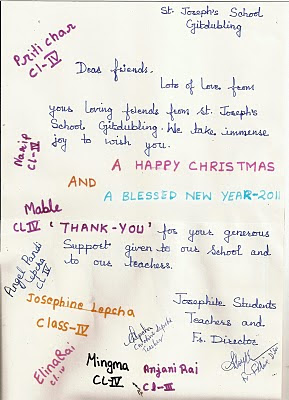 St. Joseph's School
Gitdubling
Priti char
Cl-IV
Dear friends.
Lots of Love from
your loving friends from St. Joseph's
School Gitdubling. We take immense
joy to wish you.
Narip
Cl-III
A HAPPY CHRISTMAS
AND
A BLESSED NEW YEAR-2011
Mable
CL IV
'THANK-YOU' for your generous
Support given to our School and
to our teachers.
Angel Pandi
Lepcha
CL IV
Josephine Lepcha
Class-IV
Josephite Students
Teachers and
Fr. Director
Teacher
Elina Rai
Cl. IV
Mingma
CL-IV
Anjani Rai
Cl-III